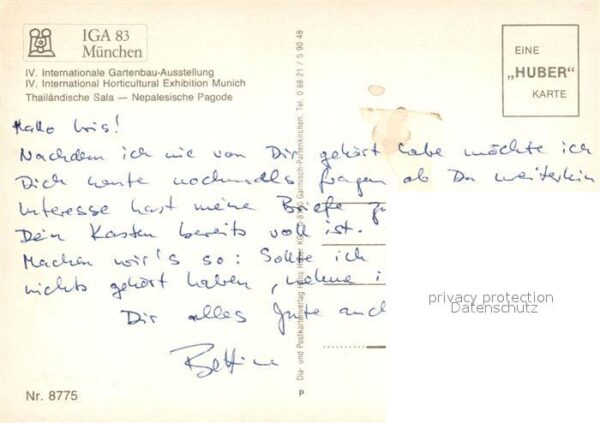 IGA 83
München
IV. Internationale Gartenbau-Ausstellung
IV. International Horticultural Exhibition Munich
Thailändische Sala — Nepalesische Pagode
EINE
„HUBER"
KARTE
Hallo Iris!
Nachdem ich nie von Dir gehört habe möchte ich
Dich heute nochmals fragen ob Du weiterhin
Interesse hast meine Briefe zu
Dein Kasten bereits voll ist.
Machen wir's so: Sollte ich
nichts gehört haben, nehme i
Dir alles Gute auch
Bettina
Dia- und Postkartenverlag Hans Huber KG, Garmisch-Partenkirchen, Tel. 0 88 21 / 5 90 48
privacy protection
Datenschutz
Nr. 8775
P